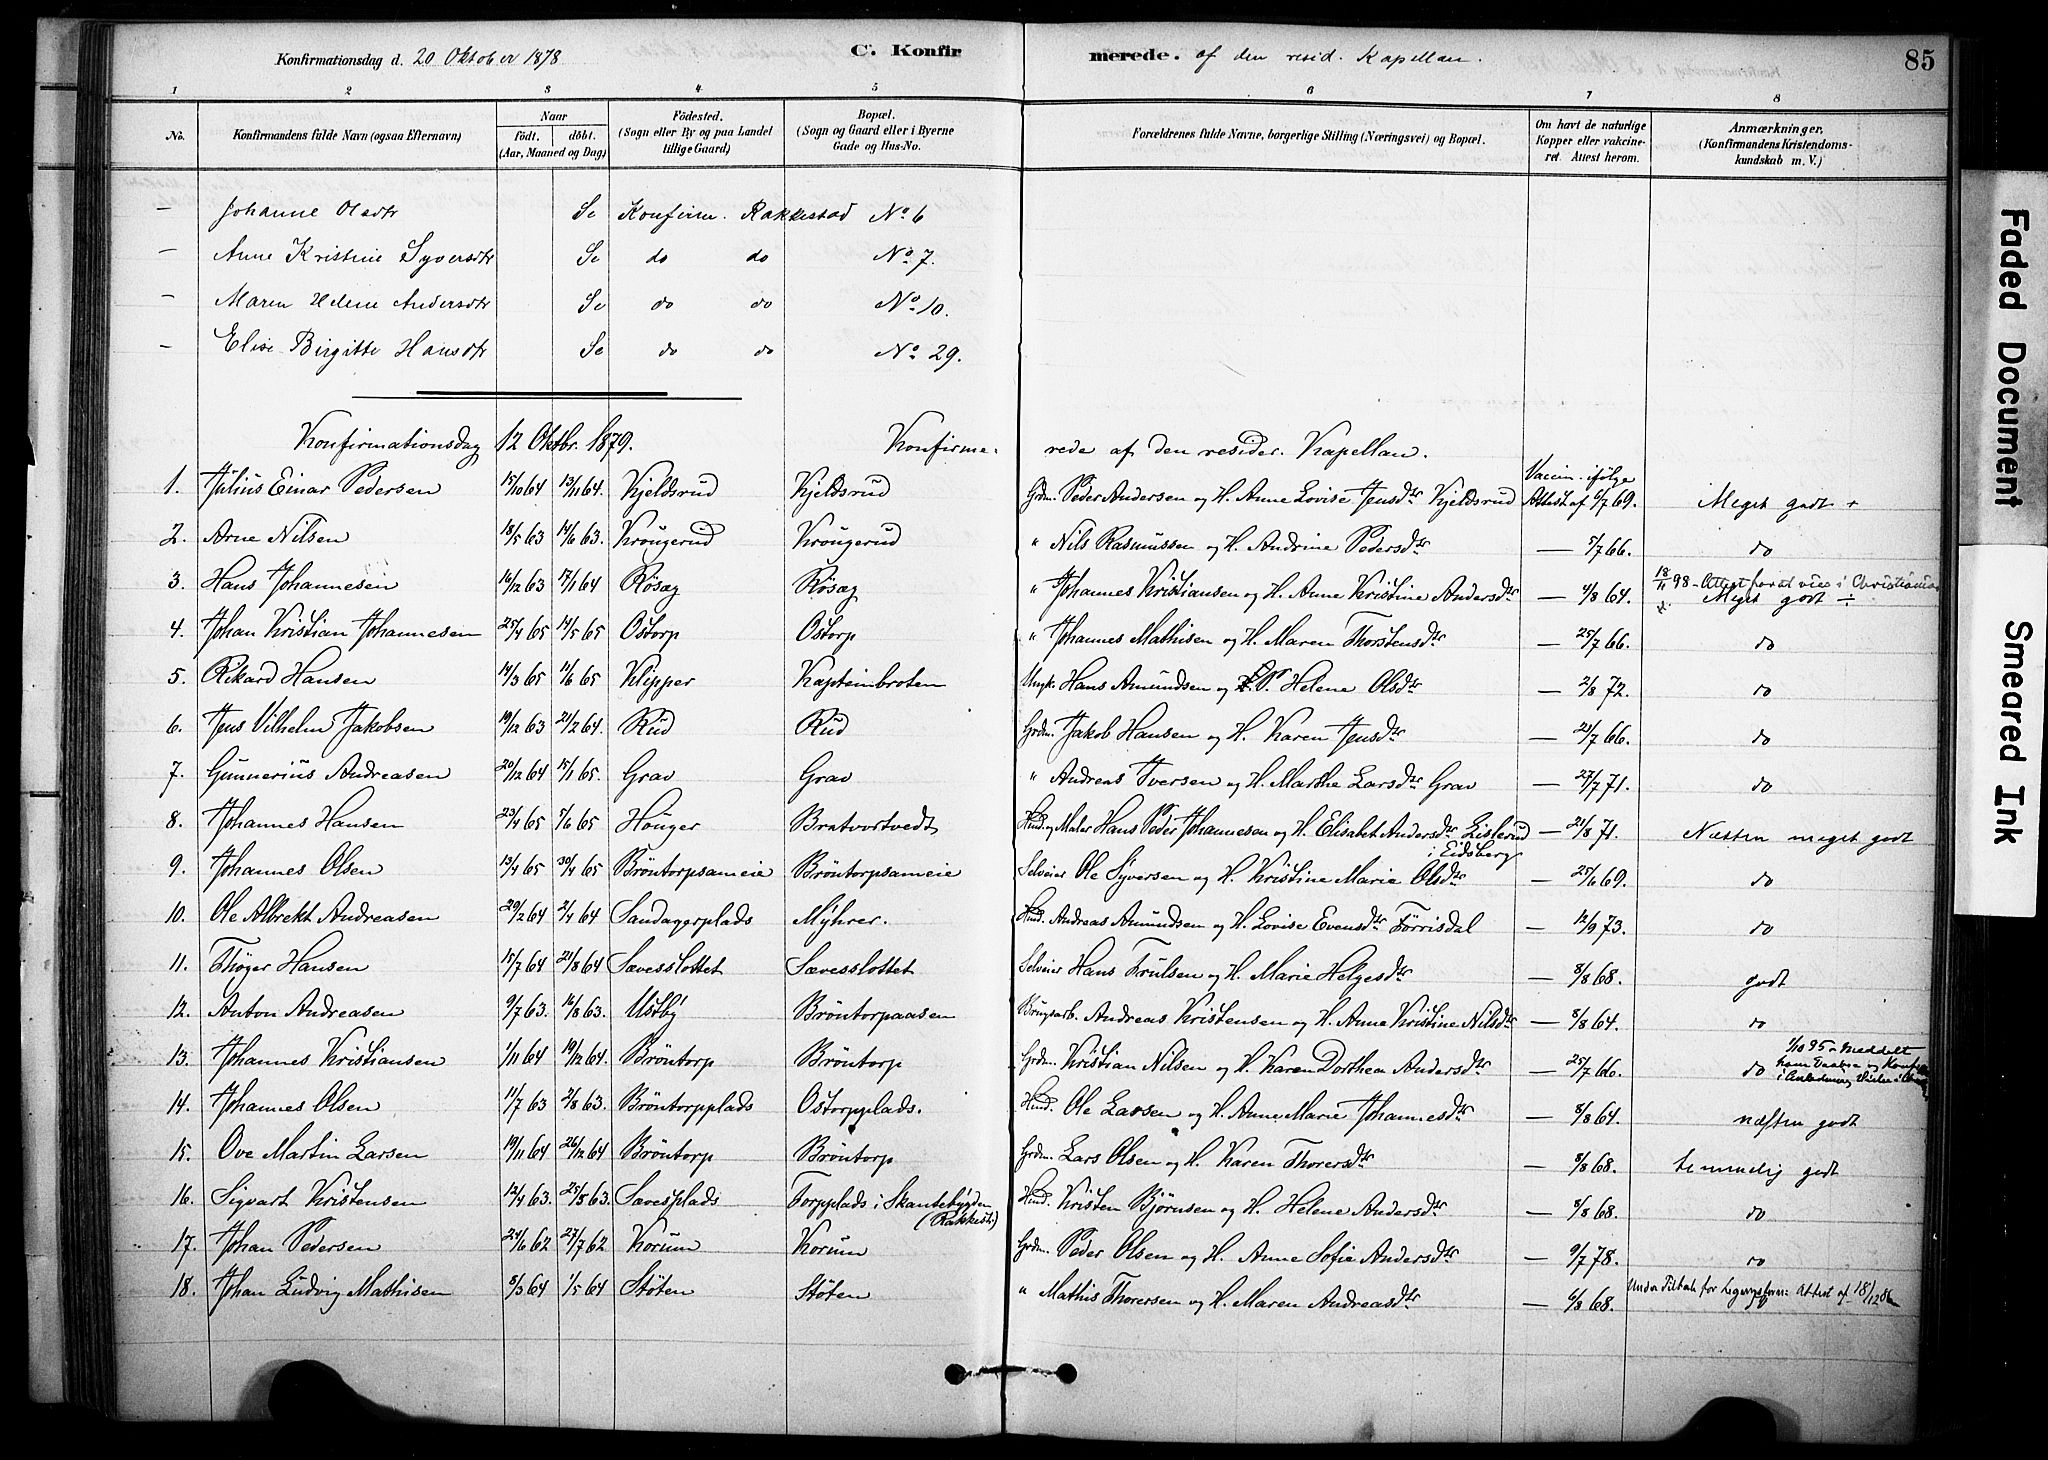 Konfirmationsdag d. 20 Oktober 1878 C. Konfirmerede. af den resid. Kapellan. 85
1 2 3 4 5 6 7 8
No. Konfirmandens fulde Navn (ogsaa Efternavn) Naar født. døbt. (Aar, Maaned og Dag) Födested. (Sogn eller By og paa Landet tillige Gaard) Bopæl. (Sogn og Gaard eller i Byerne Gade og Hus-No. Forældrenes fulde Navne, borgerlige Stilling (Næringsvei) og Bopæl. Om havt de naturlige Kopper eller vakcineret. Attest herom. Anmærkninger. (Konfirmandens Kristendomskundskab m. V.)
— Johanne Olsdtr Se Konfirm. Rakkestad No. 6
— Anne Kristine Syversdtr Se do do No. 7.
— Maren Helene Andersdtr Se do do No. 10.
— Elise Birgitte Hansdtr Se do do No. 29.
Konfirmationsdag 12 Oktbr. 1879. Konfirmerede af den resider. Kapellan.
1. Julius Einar Pedersen 15/10 64 13/11 64. Kjeldsrud Kjeldsrud Grdm. Peder Andersen og H. Anne Lovise Jensdtr Kjeldsrud Vaccin. ifølge Attest af 6/7 69. Meget godt +
2. Arne Nilsen 18/5 63 14/6 63. Krougerud Krougerud " Nils Rasmussen og H. Andrine Pedersdtr — 5/7 66. do
3. Hans Johannesen 16/12 63 17/1 64 Røsæg Røsæg " Johannes Kristiansen og H. Anne Kristine Andersdtr — 4/8 64. 18/11 98 - Attest for at vies i Christiania Meget godt ÷
4. Johan Kristian Johannesen 25/4 65 14/5 65 Ostorp Ostorp " Johannes Mathisen og H. Maren Thorstensdtr — 25/7 66. do
5. Rikard Hansen 14/3 65 11/6 65 Klipper Kapteinbroten Ungk. Hans Amundsen og P. Helene Olsdtr — 2/8 72. do
6. Jens Vilhelm Jakobsen 19/12 63 21/2 64. Rud Rud Grdm. Jakob Hansen og H. Karen Jensdtr — 21/7 66. do
7. Gunnerius Andreasen 20/12 64 15/1 65. Grav Grav " Andreas Iversen og H. Marthe Larsdtr Grav — 27/7 71. do
8. Johannes Hansen 23/4 65 5/6 65 Houger Bratvortvedt Husm. og Maler Hans Peder Johannesen og H. Elisabet Andersdtr Lislerud i Eidsberg — 21/8 71. Næsten meget godt
9. Johannes Olsen 13/4 65 30/4 65 Bröntorpsameie Bröntorpsameie Selveier Ole Syversen og H. Kristine Marie Olsdtr — 25/6 69. do
10. Ole Albrekt Andreasen 29/2 64 2/4 64 Sandagerplads Myhrer. Husm. Andreas Amundsen og H. Lovise Evensdtr Törrisdal — 12/9 73. do
11. Thøger Hansen 15/7 64 21/8 64 Sævesslottet Sævesslottet Selveier Hans Trulsen og H. Marie Helgesdtr — 8/8 68. godt
12. Anton Andreasen 9/7 63. 16/8 63. Ustby Bröntorpaasen Brugsarb. Andreas Kristensen og H. Anne Kristine Nilsdtr — 8/8 64. do
13. Johannes Kristiansen 1/11 64 19/12 64. Bröntorp Bröntorp Grdm. Kristian Nilsen og H. Karen Dorthea Andersdtr — 25/7 66. do
14. Johannes Olsen 11/7 63 2/8 63. Bröntorpplads Ostorpplads. Husm. Ole Larsen og H. Anne Marie Johannesdtr — 8/8 64. næsten godt
15. Ove Martin Larsen 19/11 64 26/12 64 Bröntorp Bröntorp Grdm. Lars Olsen og H. Karen Thorersdtr — 8/8 68. temmelig godt
16. Sigvart Kristensen 12/4 63. 25/5 63. Sævesplads Torpplads i Skantebygden (Rakkest.) Husm. Kristen Björnsen og H. Helene Andersdtr — 8/8 68. do
17. Johan Pedersen 24/6 62 27/7 62 Korum Korum Grdm. Peder Olsen og H. Anne Sofie Andersdtr — 9/7 78. do
18. Johan Ludvig Mathisen 8/3 64 1/5 64 Støten Støten " Mathis Thorersen og H. Maren Andreasdtr — 6/8 68. do
Faded Document
Smeared Ink